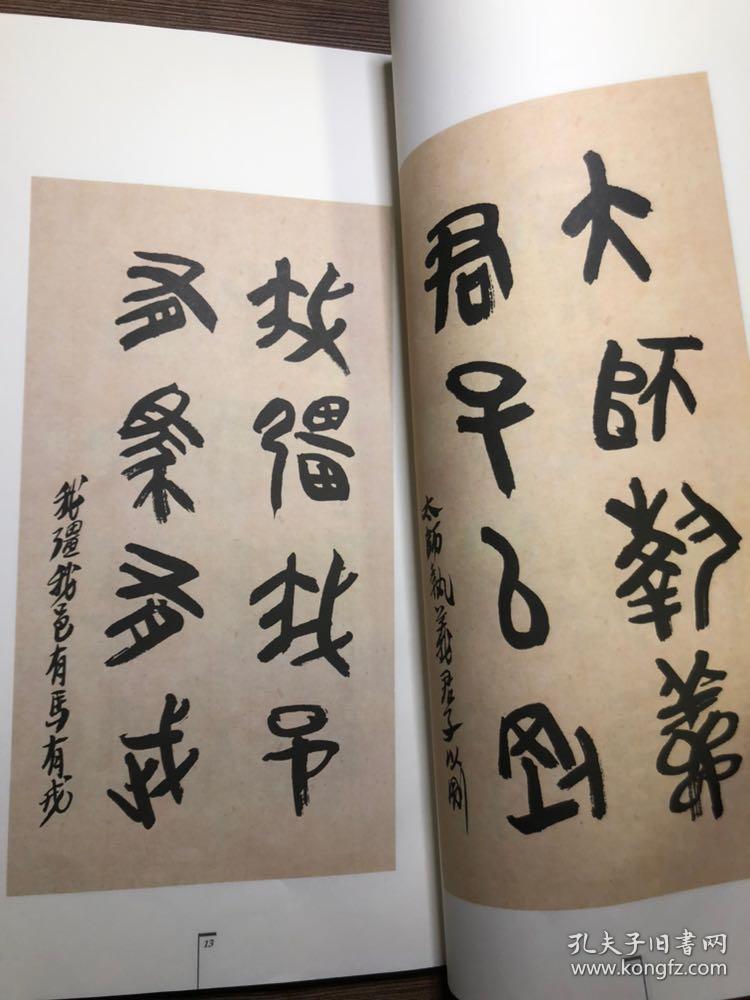 大師執義
君子以剛
太師執義君子以剛
我彊我邑
有馬有戎
我彊我邑有馬有戎
13
孔夫子旧書网
www.kongfz.com